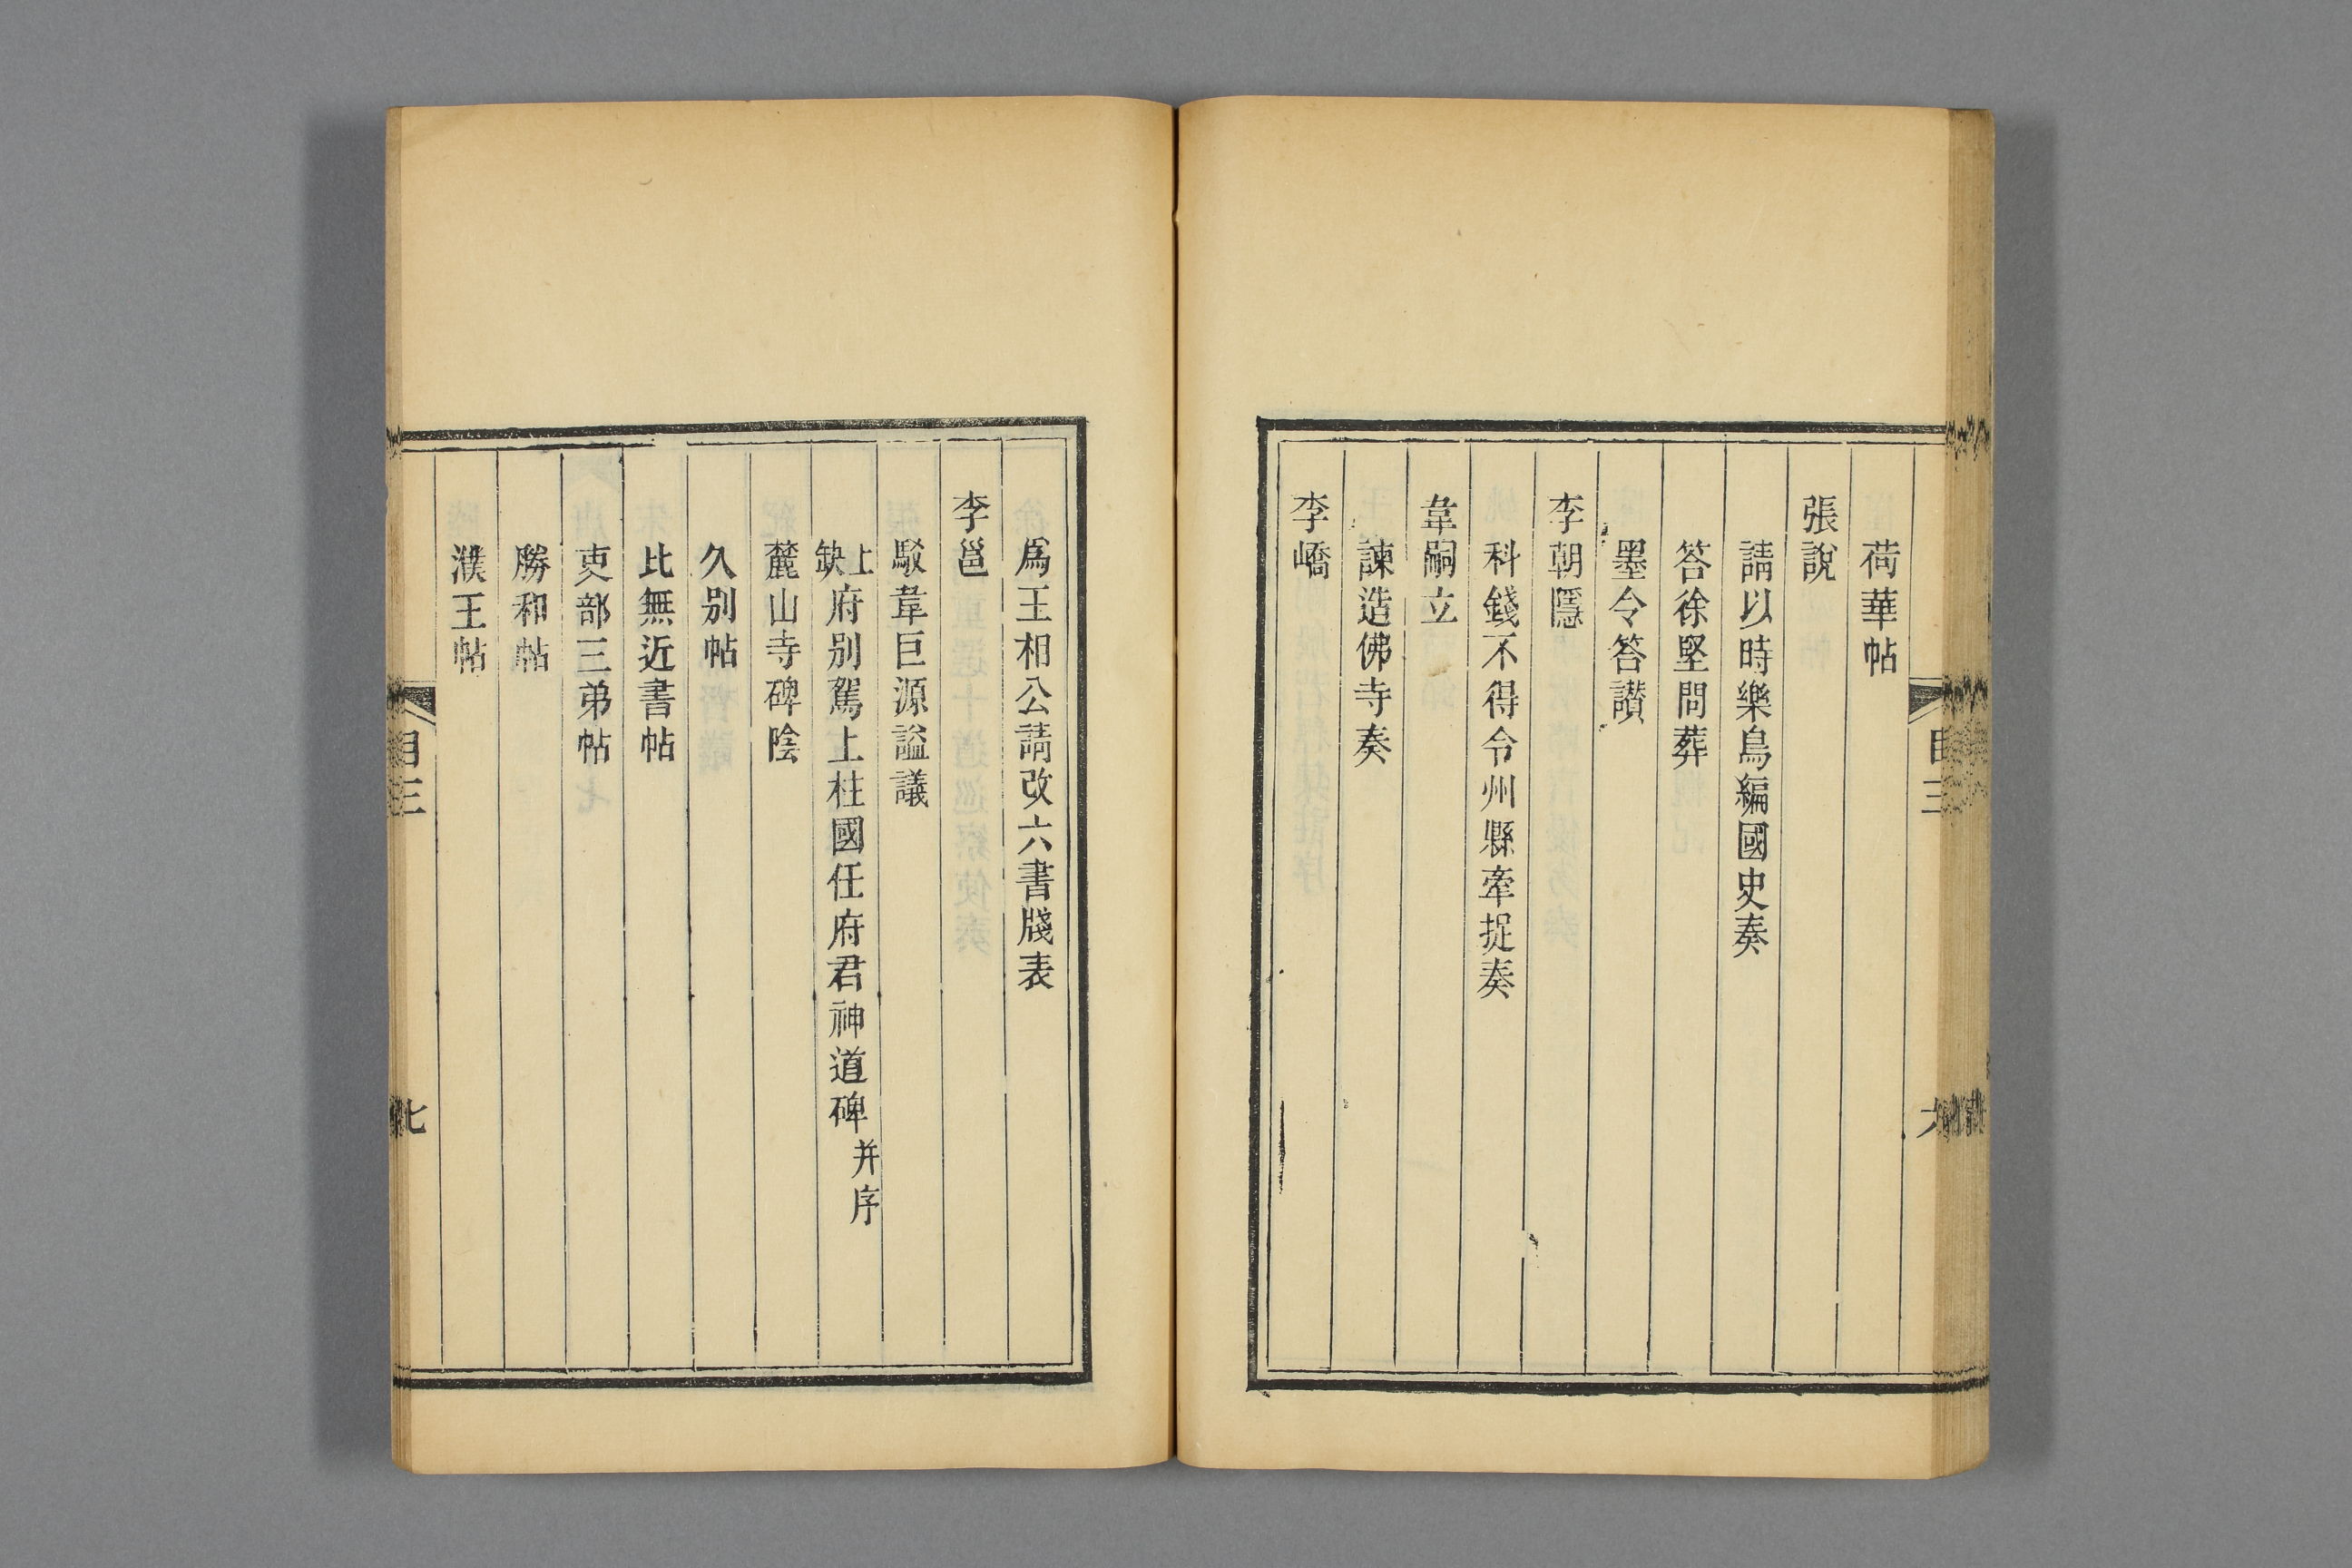 荷華帖
張說
請以時樂鳥編國史奏
答徐堅問葬
墨令答讃
李朝隱
科錢不得令州縣牽捉奏
韋嗣立
諫造佛寺奏
李嶠
爲王相公請改六書牋表
李邕
駁韋巨源諡議
上缺府別駕上柱國任府君神道碑并序
麓山寺碑陰
久別帖
比無近書帖
吏部三弟帖
勝和帖
濮王帖
目三
七